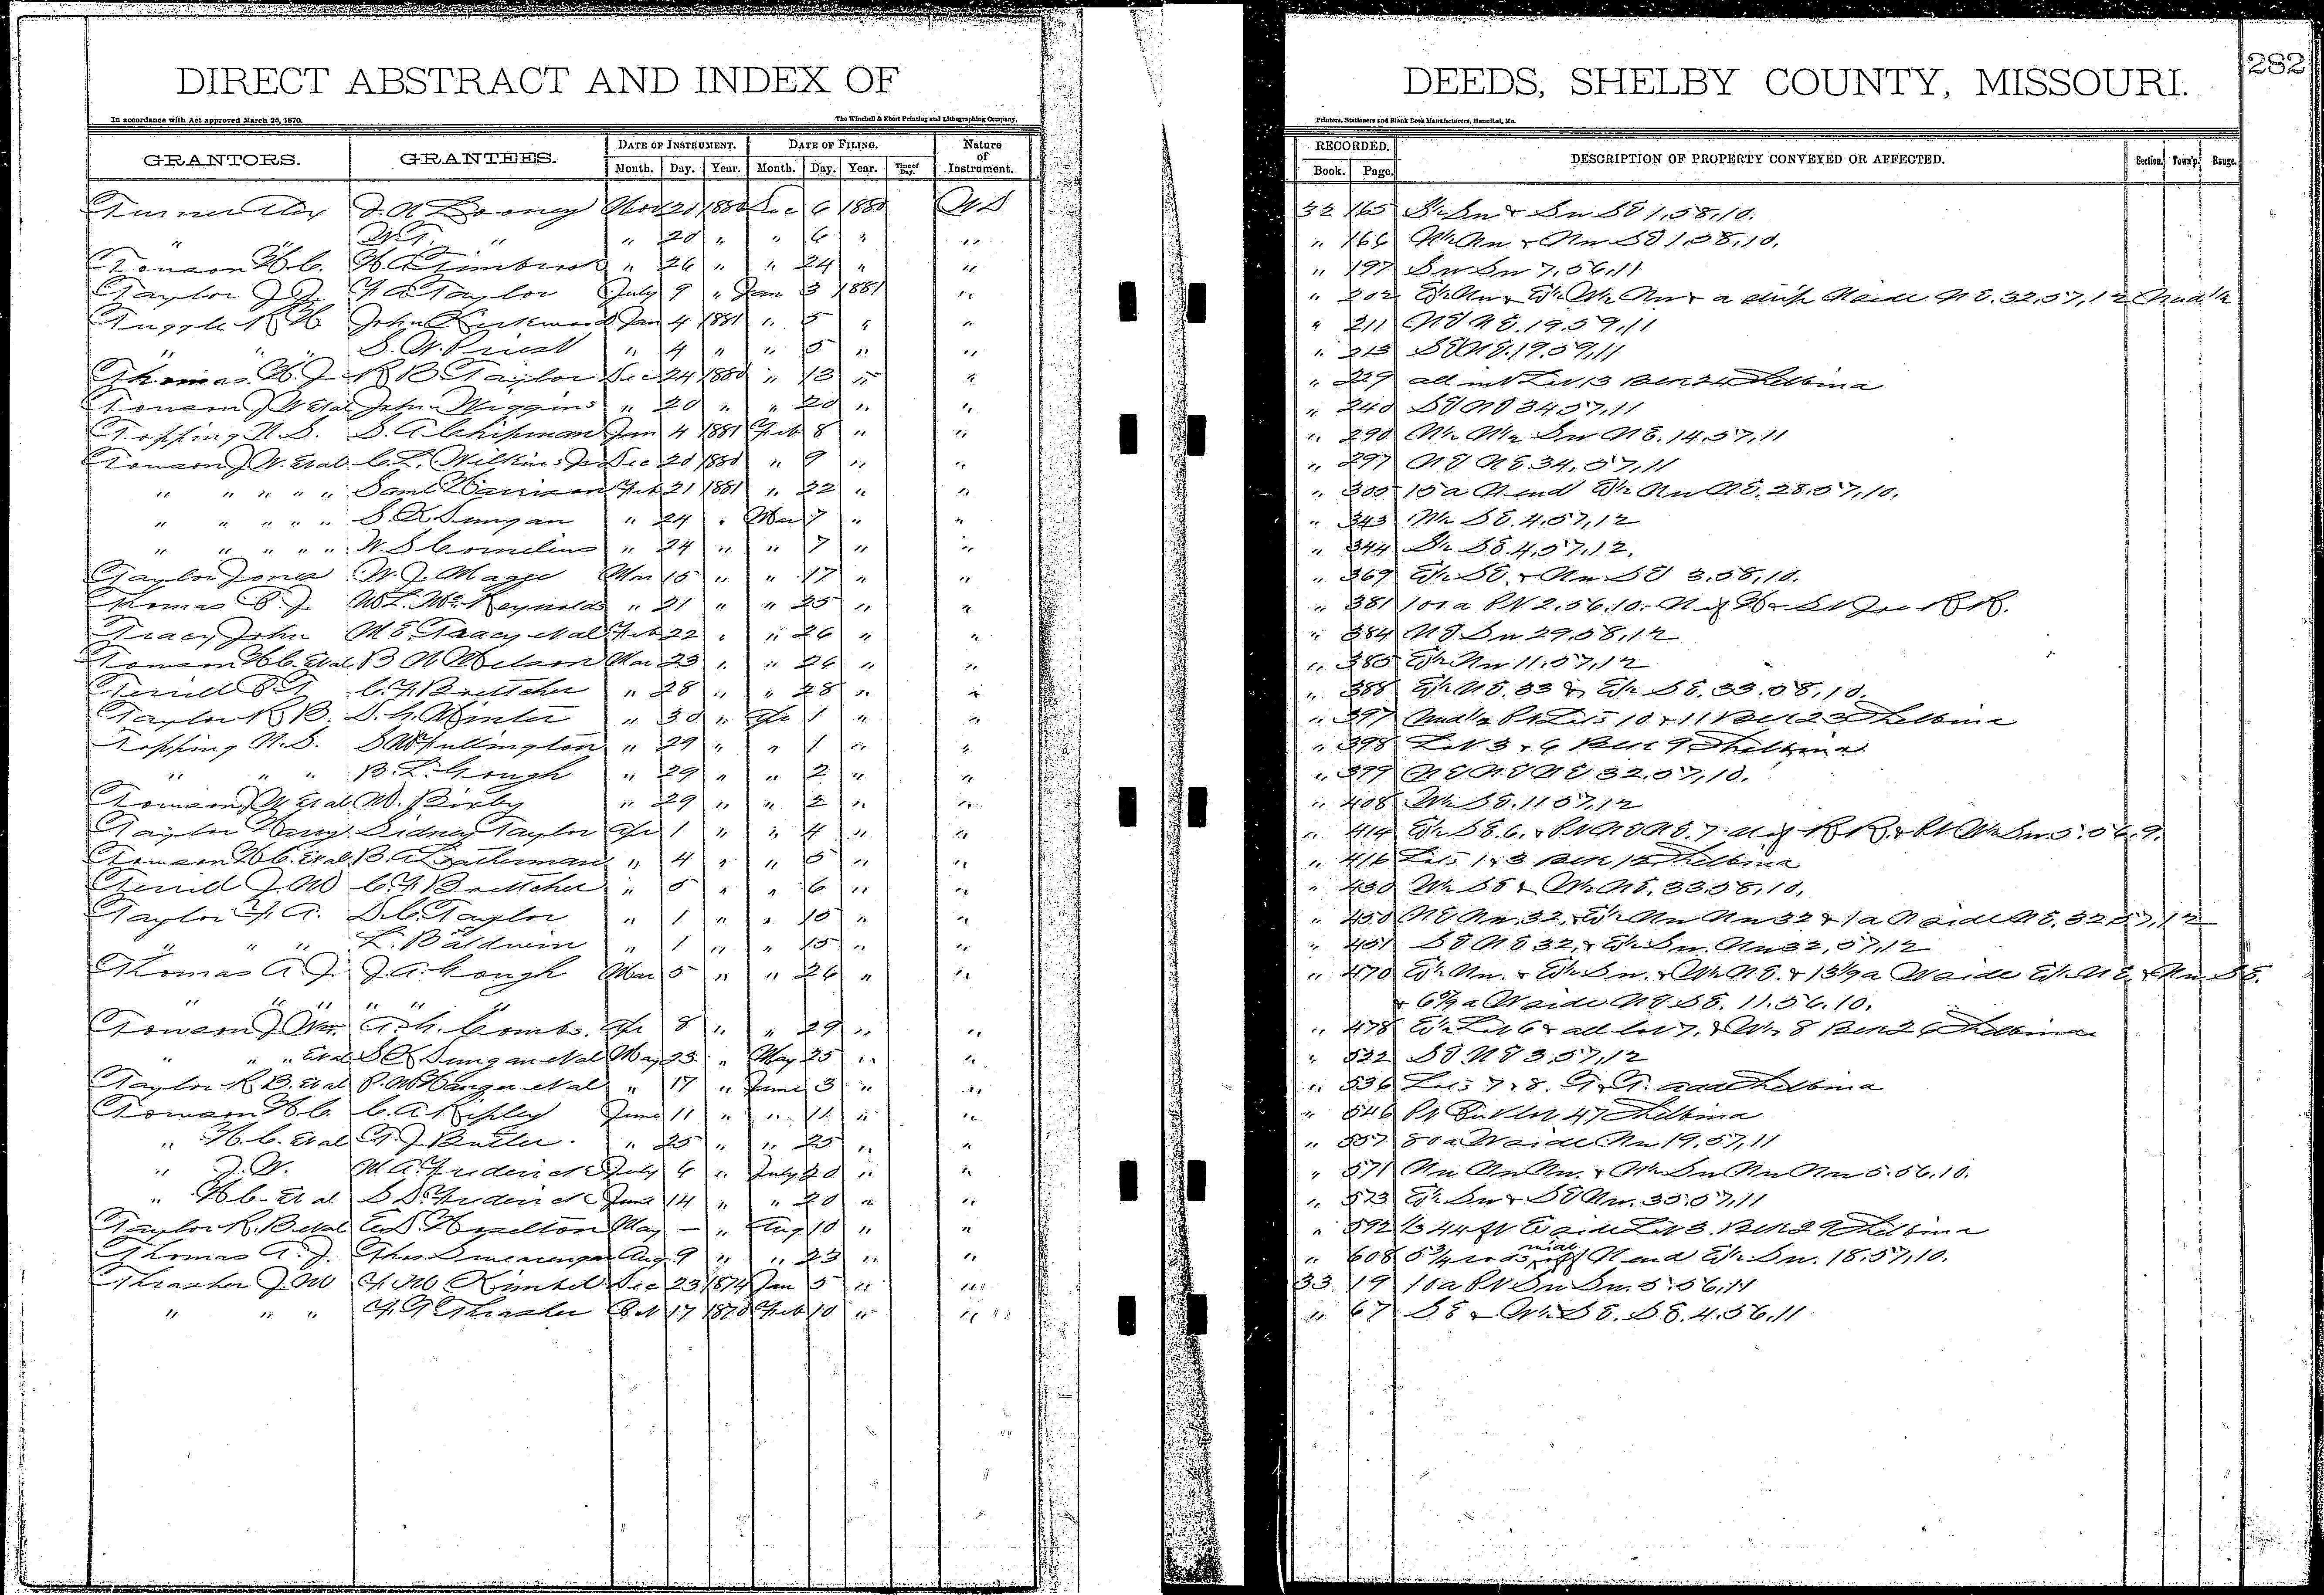 DIRECT ABSTRACT AND INDEX OF DEEDS, SHELBY COUNTY, MISSOURI. 282
In accordance with Act approved March 25, 1870. The Winchell & Ebert Printing and Lithographing Company, Printers, Stationers and Blank Book Manufacturers, Hannibal, Mo.
GRANTORS. GRANTEES. DATE OF INSTRUMENT. DATE OF FILING. Nature of Instrument. RECORDED. DESCRIPTION OF PROPERTY CONVEYED OR AFFECTED. Section. Town'p. Range.
Month. Day. Year. Month. Day. Year. Time of Day. Book. Page.
Turner Alex 1880 Dec 6 1880 WD 32 165 Sw & Sw SE 1,58,10.
" " W T. " " 20 " " 6 " " " 166 Nw & Nw SE 1,58,10.
Towson H C. " 26 " " 24 " " " 197 Sw Sw 7,56,11
Taylor J J. F A Taylor July 9 " Jan 3 1881 " " 202 a strip N side NE. 32,57,12
Tuggle R H John Kirkwood Jan 4 1881 " 5 " " " 211 NE NE. 19.59,11
" " " S. W. Priest " 4 " " 5 " " " 213 SE NE. 19.59,11
Thomas H. J R B Taylor Dec 24 1880 " 13 " " " 229 Lot 13 Blk 24 Shelbina
Towson J W Et al John Wiggins " 20 " " 20 " " " 240 SE NE 34 57,11
Topping N. S. S. A Chipman Jan 4 1881 Feb 8 " " " 290 Sw NE. 14,57,11
Towson J W. Et al C. L. Wilkins Jr Dec 20 1880 " 9 " " " 297 NE NE. 34, 57,11
" " " " " Saml Harrison Feb 21 1881 " 22 " " " 305 15 a N end Nw NE. 28,57,10.
" " " " " S. K Dungan " 24 " Mar 7 " " " 343 SE. 4,57,12
" " " " " W. S Cornelius " 24 " " 7 " " " 344 SE. 4,57,12.
Taylor Jones W. J. Magee Mar 15 " " 17 " " " 369 SE. & Nw SE 3.58,10.
Thomas B. J. W L. McReynolds " 21 " " 25 " " " 381 2,56,10. N of H & St Joe R R.
Tracy John M E Tracy et al Feb 22 " " 26 " " " 384 NE Sw 29,58,12
Towson H C. Et al B N Nelson Mar 23 " " 26 " " " 385 Nw 11,57,12
Terrill B T C. F Boettcher " 28 " " 28 " " " 388 NE. 33 & SE. 33.58,10.
Taylor R B. S. G. Winter " 30 " Apr 1 " " " 397 Lots 10 & 11 Blk 23 Shelbina
Topping N. S. S W Fullington " 29 " " 1 " " " 398 Lot 3 & 6 Blk 9 Shelbina
" " " B. L. Gough " 29 " " 2 " " " 399 NE NE NE 32.57,10.
Towson J W Et al W. J Bixby " 29 " " 2 " " " 408 SE. 11 57,12
Taylor Sidney Taylor Apr 1 " " 4 " " " 414 SE. 6. & Pt NE NE. 7 N of R R. & Pt Sw. 5.56,9.
Towson H C. Et al B. A Leatherman " 4 " " 5 " " " 416 Lots 1 & 3 Blk Shelbina
Terrill J. W C. F Boettcher " 5 " " 6 " " " 430 SE & NE. 33.58,10.
Taylor F. A. D. C. Taylor " 1 " " 15 " " " 450 NE Nw. 32, Nw Nw 32 & 1 a N side NE. 32.57,12
" " " L. Baldwin " 1 " " 15 " " " 451 SE NE 32, & Sw. Nw 32, 57,12
Thomas A. J. J. A. Gough Mar 5 " " 26 " " " 470 Nw. & Sw. & NE. & a W side NE. & Nw SE.
" " " " " " & a W side NE SE. 11.56.10.
Towson J W. A. H. Combs. Apr 8 " " 29 " " " 478 Lot 6 & all lot 7, & 8 Blk 26 Shelbina
" " " Et al S K Dungan et al May 23 " May 25 " " " 522 SE NE 3,57,12
Taylor R B. Et al P. W Hanger et al " 17 " June 3 " " " 536 Lots 7 & 8. T & T. add Shelbina
Towson H C. C. A Ripley June 11 " " 11 " " " 546 47 Shelbina
" H. C. Et al T. J. Butler. " 25 " " 25 " " " 557 80 a W side Nw 19,57,11
" J. W. M A Frederick July 6 " July 20 " " " 571 Nw Nw Nw. & Sw Nw Nw 5.56.10.
" H C. Et al S D. Frederick June 14 " " 20 " " " 573 Sw & SE Nw. 35.57,11
Taylor R. B et al Hazelton May — " Aug 10 " " " 592 E side Lot 3. Blk 29 Shelbina
Thomas A. J. Thos Swearengen Aug 9 " " 23 " " " 608 5 3/4 rods wide off N end Sw. 18.57,10.
Thrasher J. W F. M Kimbel Dec 23 1874 Jan 5 " " 33 19 10 a Pt Sw Sw. 5.56,11
" " " F. T Thrasher Oct 17 1870 Feb 10 " " " 67 SE & SE. SE. 4.56.11